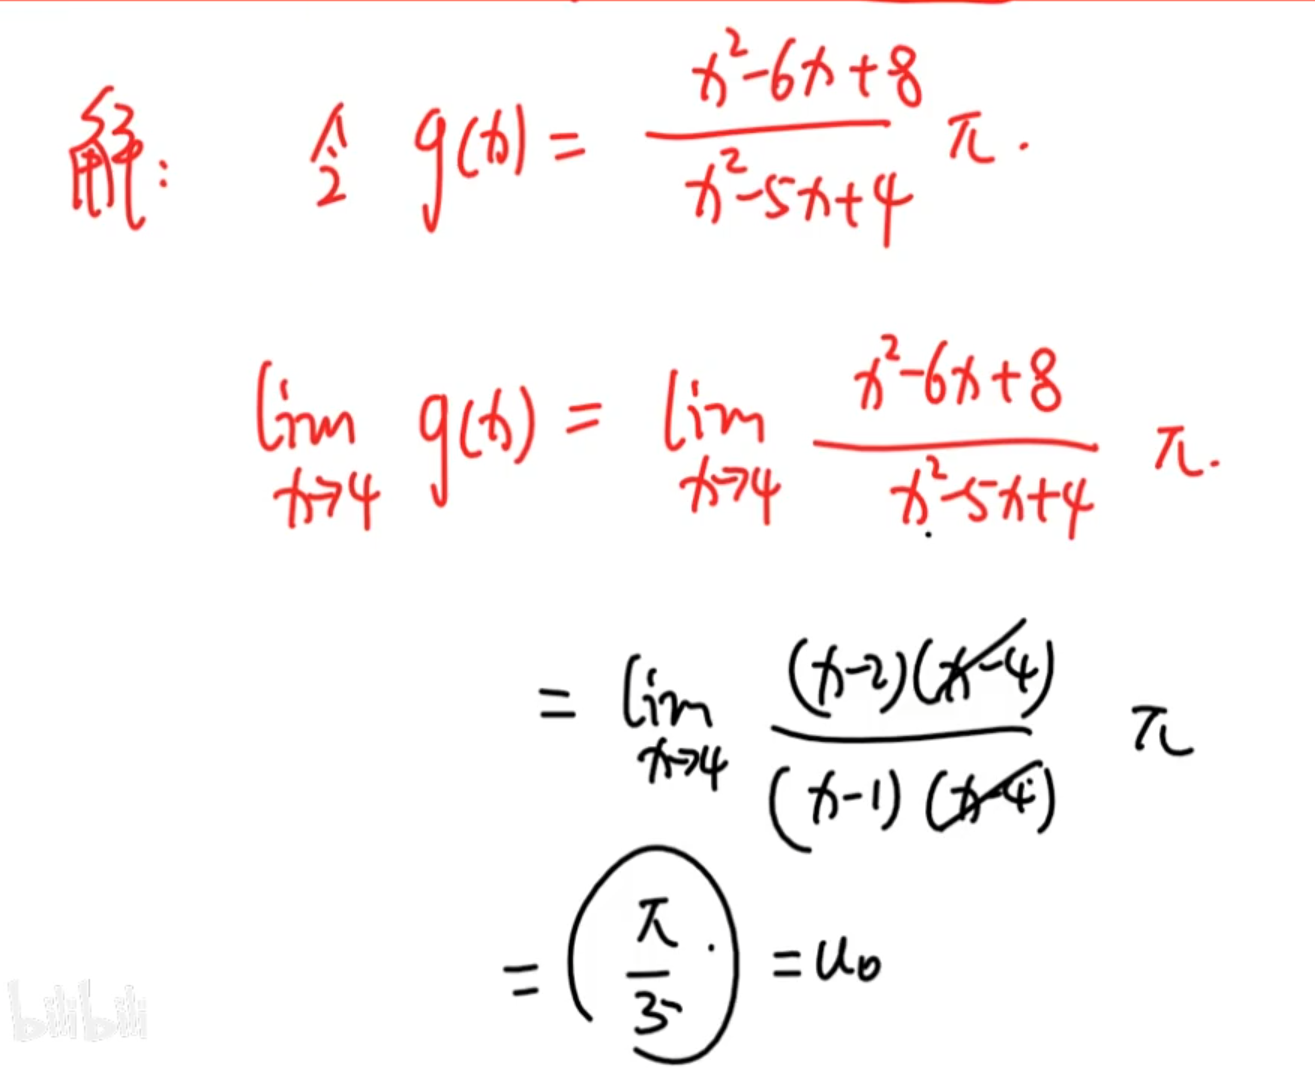 解: 令 g(x) = \frac{x^2-6x+8}{x^2-5x+4} π.
\lim_{x→4} g(x) = \lim_{x→4} \frac{x^2-6x+8}{x^2-5x+4} π.
= \lim_{x→4} \frac{(x-2)(x-4)}{(x-1)(x-4)} π
= \frac{π}{3} = u_0
bilibili